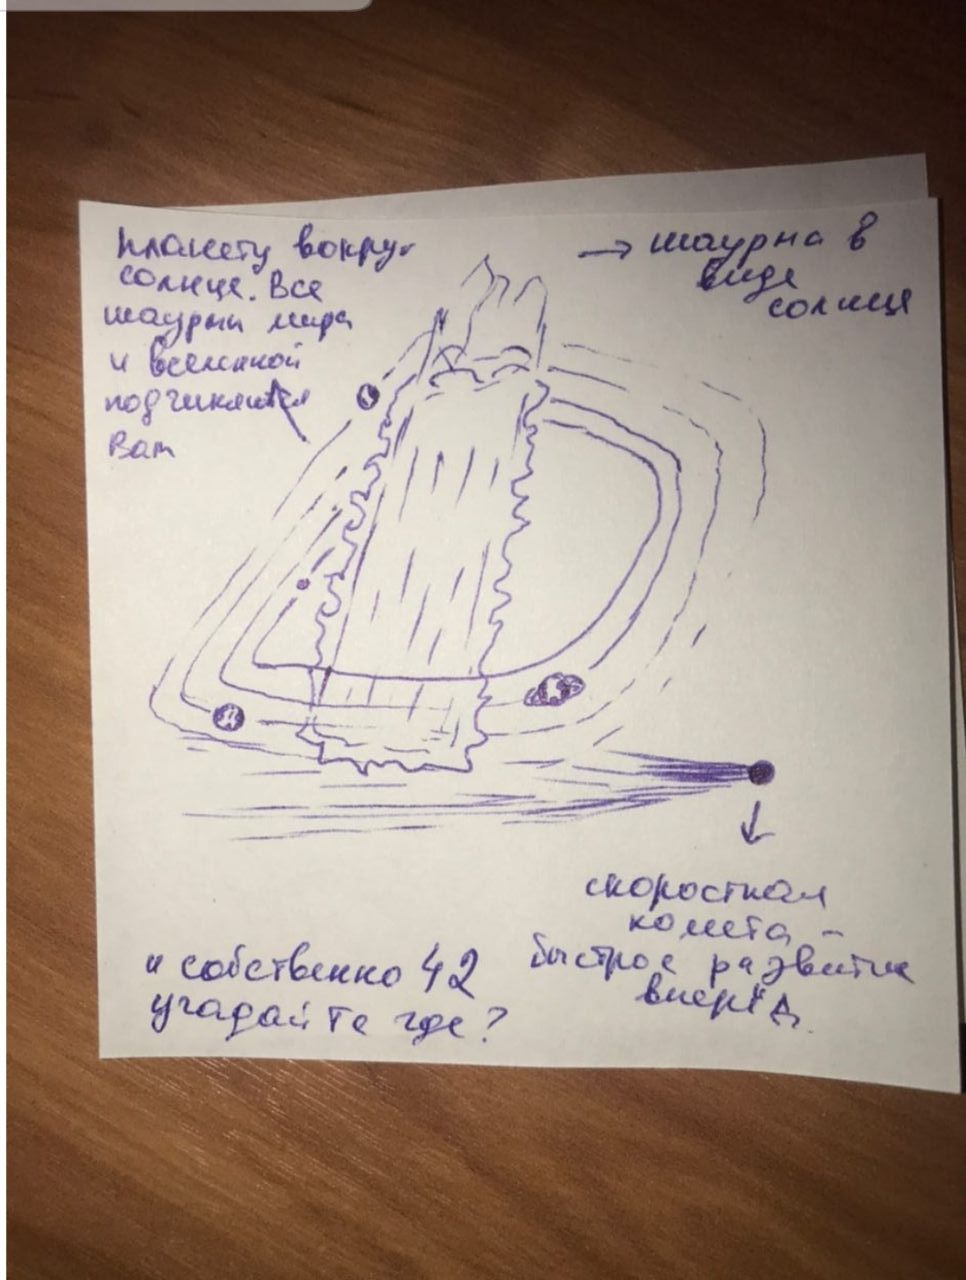 планеты вокруг
солнце. Все
шаурмы мира
и вселенной
подчиняются
Вам
→ шаурма в
виде
солнца
скоростная
комета -
быстрое развитие
вперёд
и собственно 42
угадайте где?